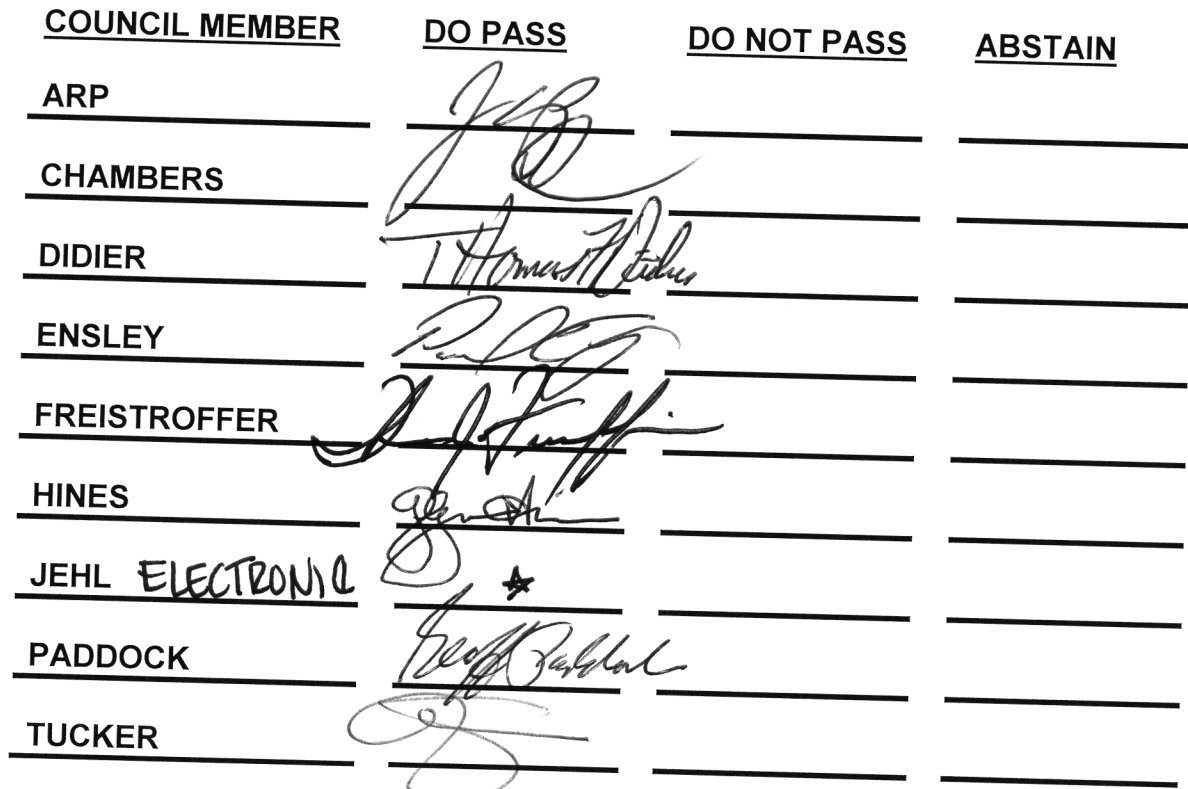 COUNCIL MEMBER DO PASS DO NOT PASS ABSTAIN
ARP
CHAMBERS
DIDIER Thomas F Didier
ENSLEY
FREISTROFFER
HINES
JEHL ELECTRONIC
PADDOCK Geoff Paddock
TUCKER